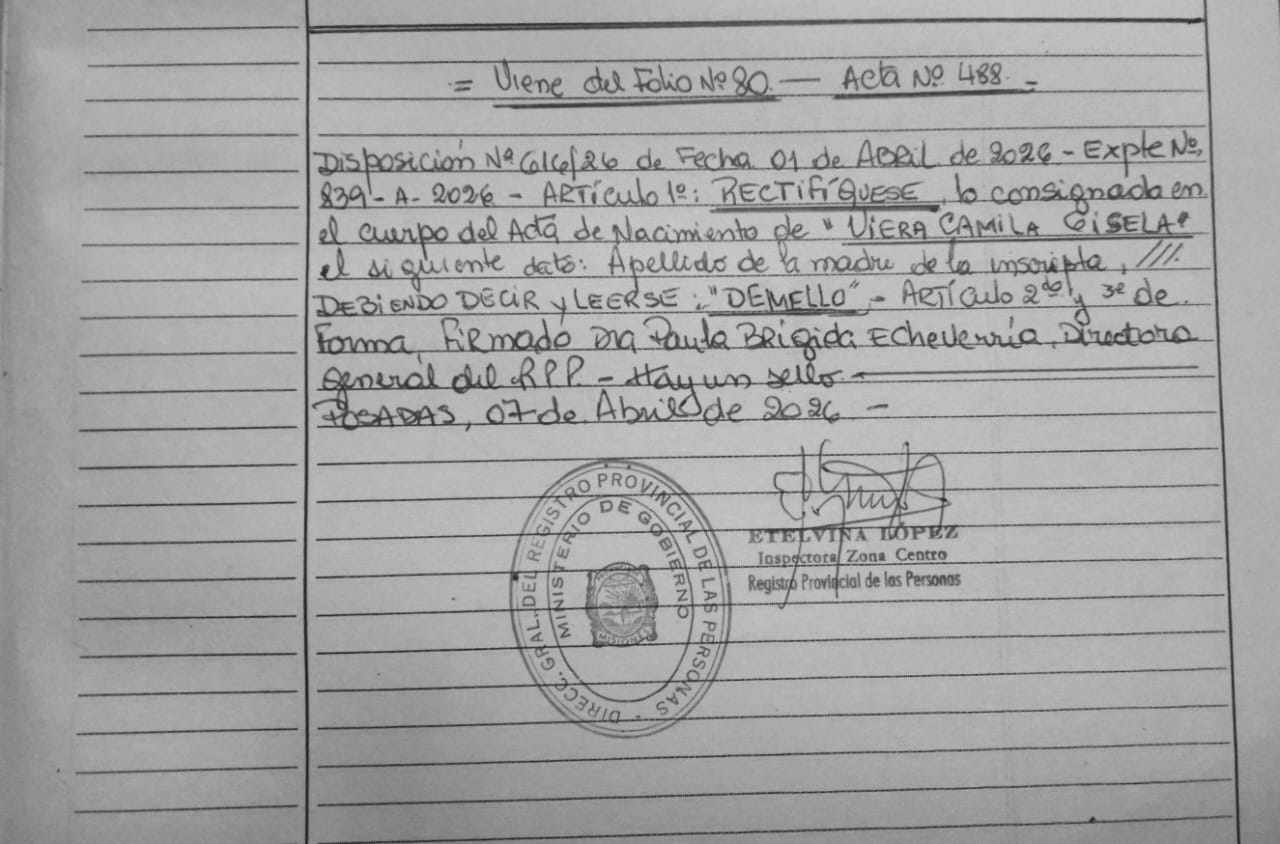 = Viene del Folio Nº 80. — Acta Nº 488. -
Disposición Nº 616/26 de Fecha 01 de Abril de 2026 - Expte Nº.
839 - A - 2026 - Artículo 1º: RECTIFÍQUESE, lo consignado en
el cuerpo del Acta de Nacimiento de "VIERA CAMILA GISELA"
el siguiente dato: Apellido de la madre de la inscripta, ////.
DEBIENDO DECIR y LEERSE: "DEMELLO" - Artículo 2do y 3e de
Forma, Firmado Dra Paula Brigida Echeverría, Directora
General del R.P.P. - Hay un sello. —
POSADAS, 07 de Abril de 2026 -
DIRECC. GRAL. DEL REGISTRO PROVINCIAL DE LAS PERSONAS
MINISTERIO DE GOBIERNO
MISIONES
ETELVINA LÓPEZ
Inspectora Zona Centro
Registro Provincial de las Personas